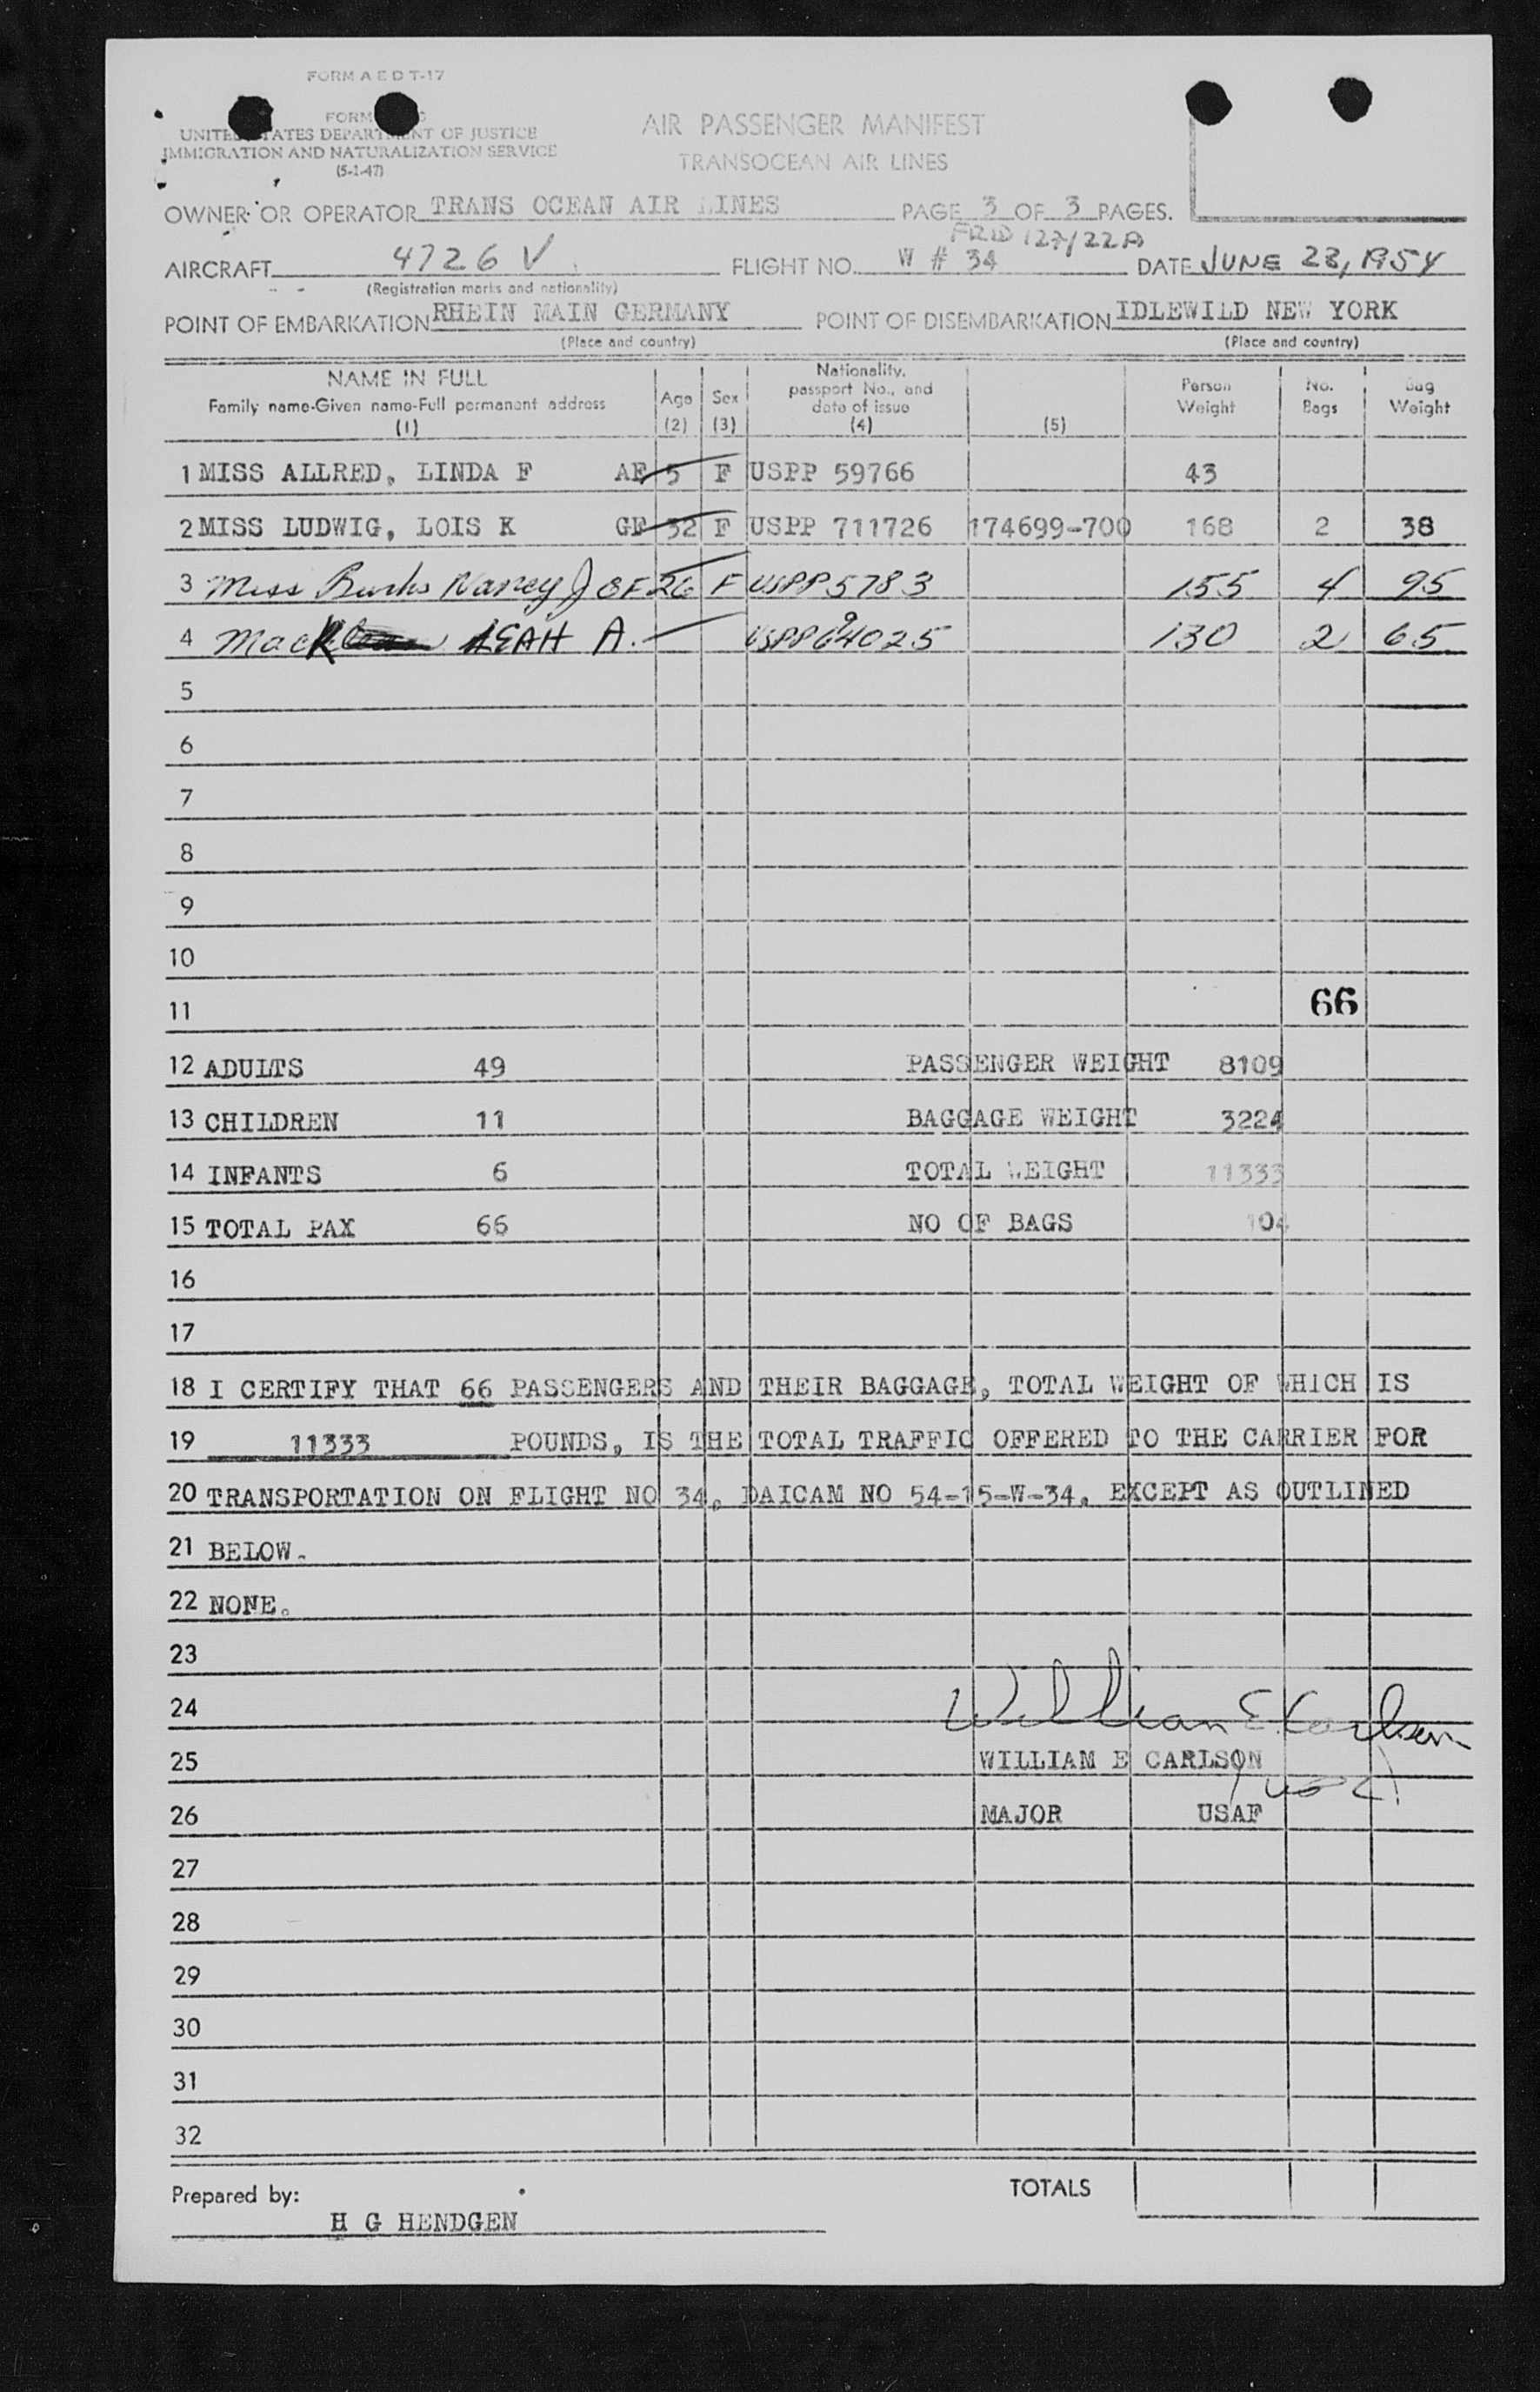 FORM A E D T-17
FORM
UNITED STATES DEPARTMENT OF JUSTICE
IMMIGRATION AND NATURALIZATION SERVICE
(5-1-47)
AIR PASSENGER MANIFEST
TRANSOCEAN AIR LINES
OWNER OR OPERATOR TRANS OCEAN AIR LINES PAGE 3 OF 3 PAGES.
AIRCRAFT 4726 V FLIGHT NO. W # 34 DATE JUNE 22, 1954
(Registration marks and nationality)
POINT OF EMBARKATION RHEIN MAIN GERMANY POINT OF DISEMBARKATION IDLEWILD NEW YORK
(Place and country) (Place and country)
NAME IN FULL
Family name-Given name-Full permanent address
(1)
Age
(2)
Sex
(3)
Nationality,
passport No., and
date of issue
(4)
(5)
Person
Weight
No.
Bags
Bag
Weight
1 MISS ALLRED, LINDA F AF 5 F USPP 59766 43
2 MISS LUDWIG, LOIS K GF 32 F USPP 711726 174699-700 168 2 38
3 Miss Burks Nancy J GF 26 F USPP 5783 155 4 95
4 Mack LEAH A. 130 2 65
5
6
7
8
9
10
11 66
12 ADULTS 49 PASSENGER WEIGHT 8109
13 CHILDREN 11 BAGGAGE WEIGHT 3224
14 INFANTS 6 TOTAL WEIGHT 11333
15 TOTAL PAX 66 NO OF BAGS 104
16
17
18 I CERTIFY THAT 66 PASSENGERS AND THEIR BAGGAGE, TOTAL WEIGHT OF WHICH IS
19 11333 POUNDS, IS THE TOTAL TRAFFIC OFFERED TO THE CARRIER FOR
20 TRANSPORTATION ON FLIGHT NO 34, DAICAM NO 54-15-W-34, EXCEPT AS OUTLINED
21 BELOW.
22 NONE.
23
24 William E. Carlson
25 WILLIAM E CARLSON
26 MAJOR USAF
27
28
29
30
31
32
Prepared by: TOTALS
H G HENDGEN